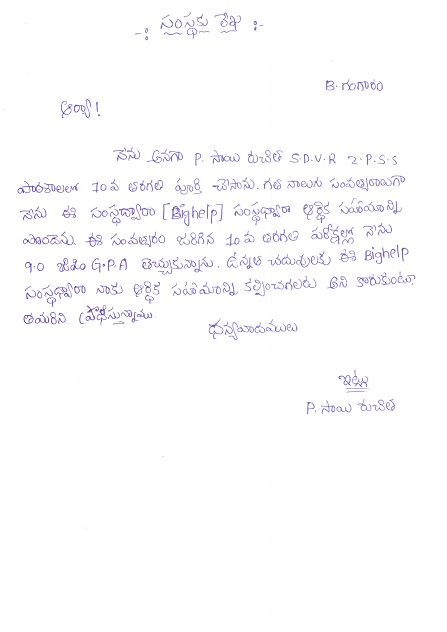 -: సంస్థకు లేఖ :-
B. గంగారం
ఆర్యా!
నేను అనగా P. సాయి రుచిత S.D.V.R Z.P.S.S
పాఠశాలలో 10వ తరగతి పూర్తి చేసాను. గత నాలుగు సంవత్సరాలుగా
నేను ఈ సంస్థద్వారా [Bighelp] సంస్థద్వారా ఆర్థిక సహాయాన్ని
పొందాను. ఈ సంవత్సరం జరిగిన 10వ తరగతి పరీక్షల్లో నేను
9.0 జిపిఎ G.P.A తెచ్చుకున్నాను. ఉన్నత చదువులకు ఈ Bighelp
సంస్థద్వారా నాకు ఆర్థిక సహాయాన్ని కల్పించగలరు అని కోరుకుంటూ
తమరిని ప్రార్థిస్తున్నాము.
ధన్యవాదములు
ఇట్లు
P. సాయి రుచిత